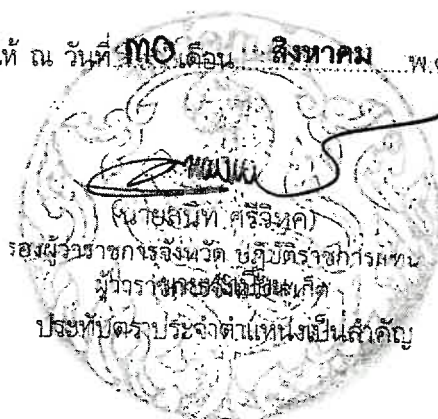 ให้ ณ วันที่ ๓๐ เดือน สิงหาคม พ.ศ
(นายสนิท ศรีวิหค)
รองผู้ว่าราชการจังหวัด ปฏิบัติราชการแทน
ประทับตราประจำตำแหน่งเป็นสำคัญ